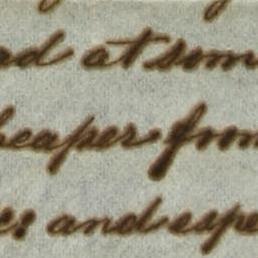 ad at som
heaper from
es and espe